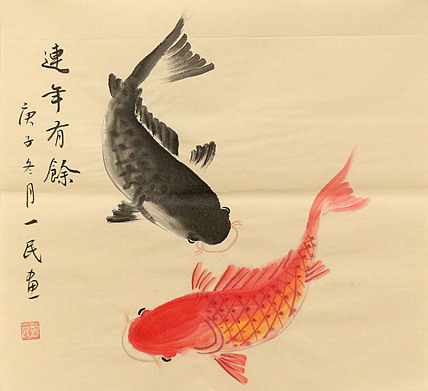 連年有餘
庚子冬月一民畫